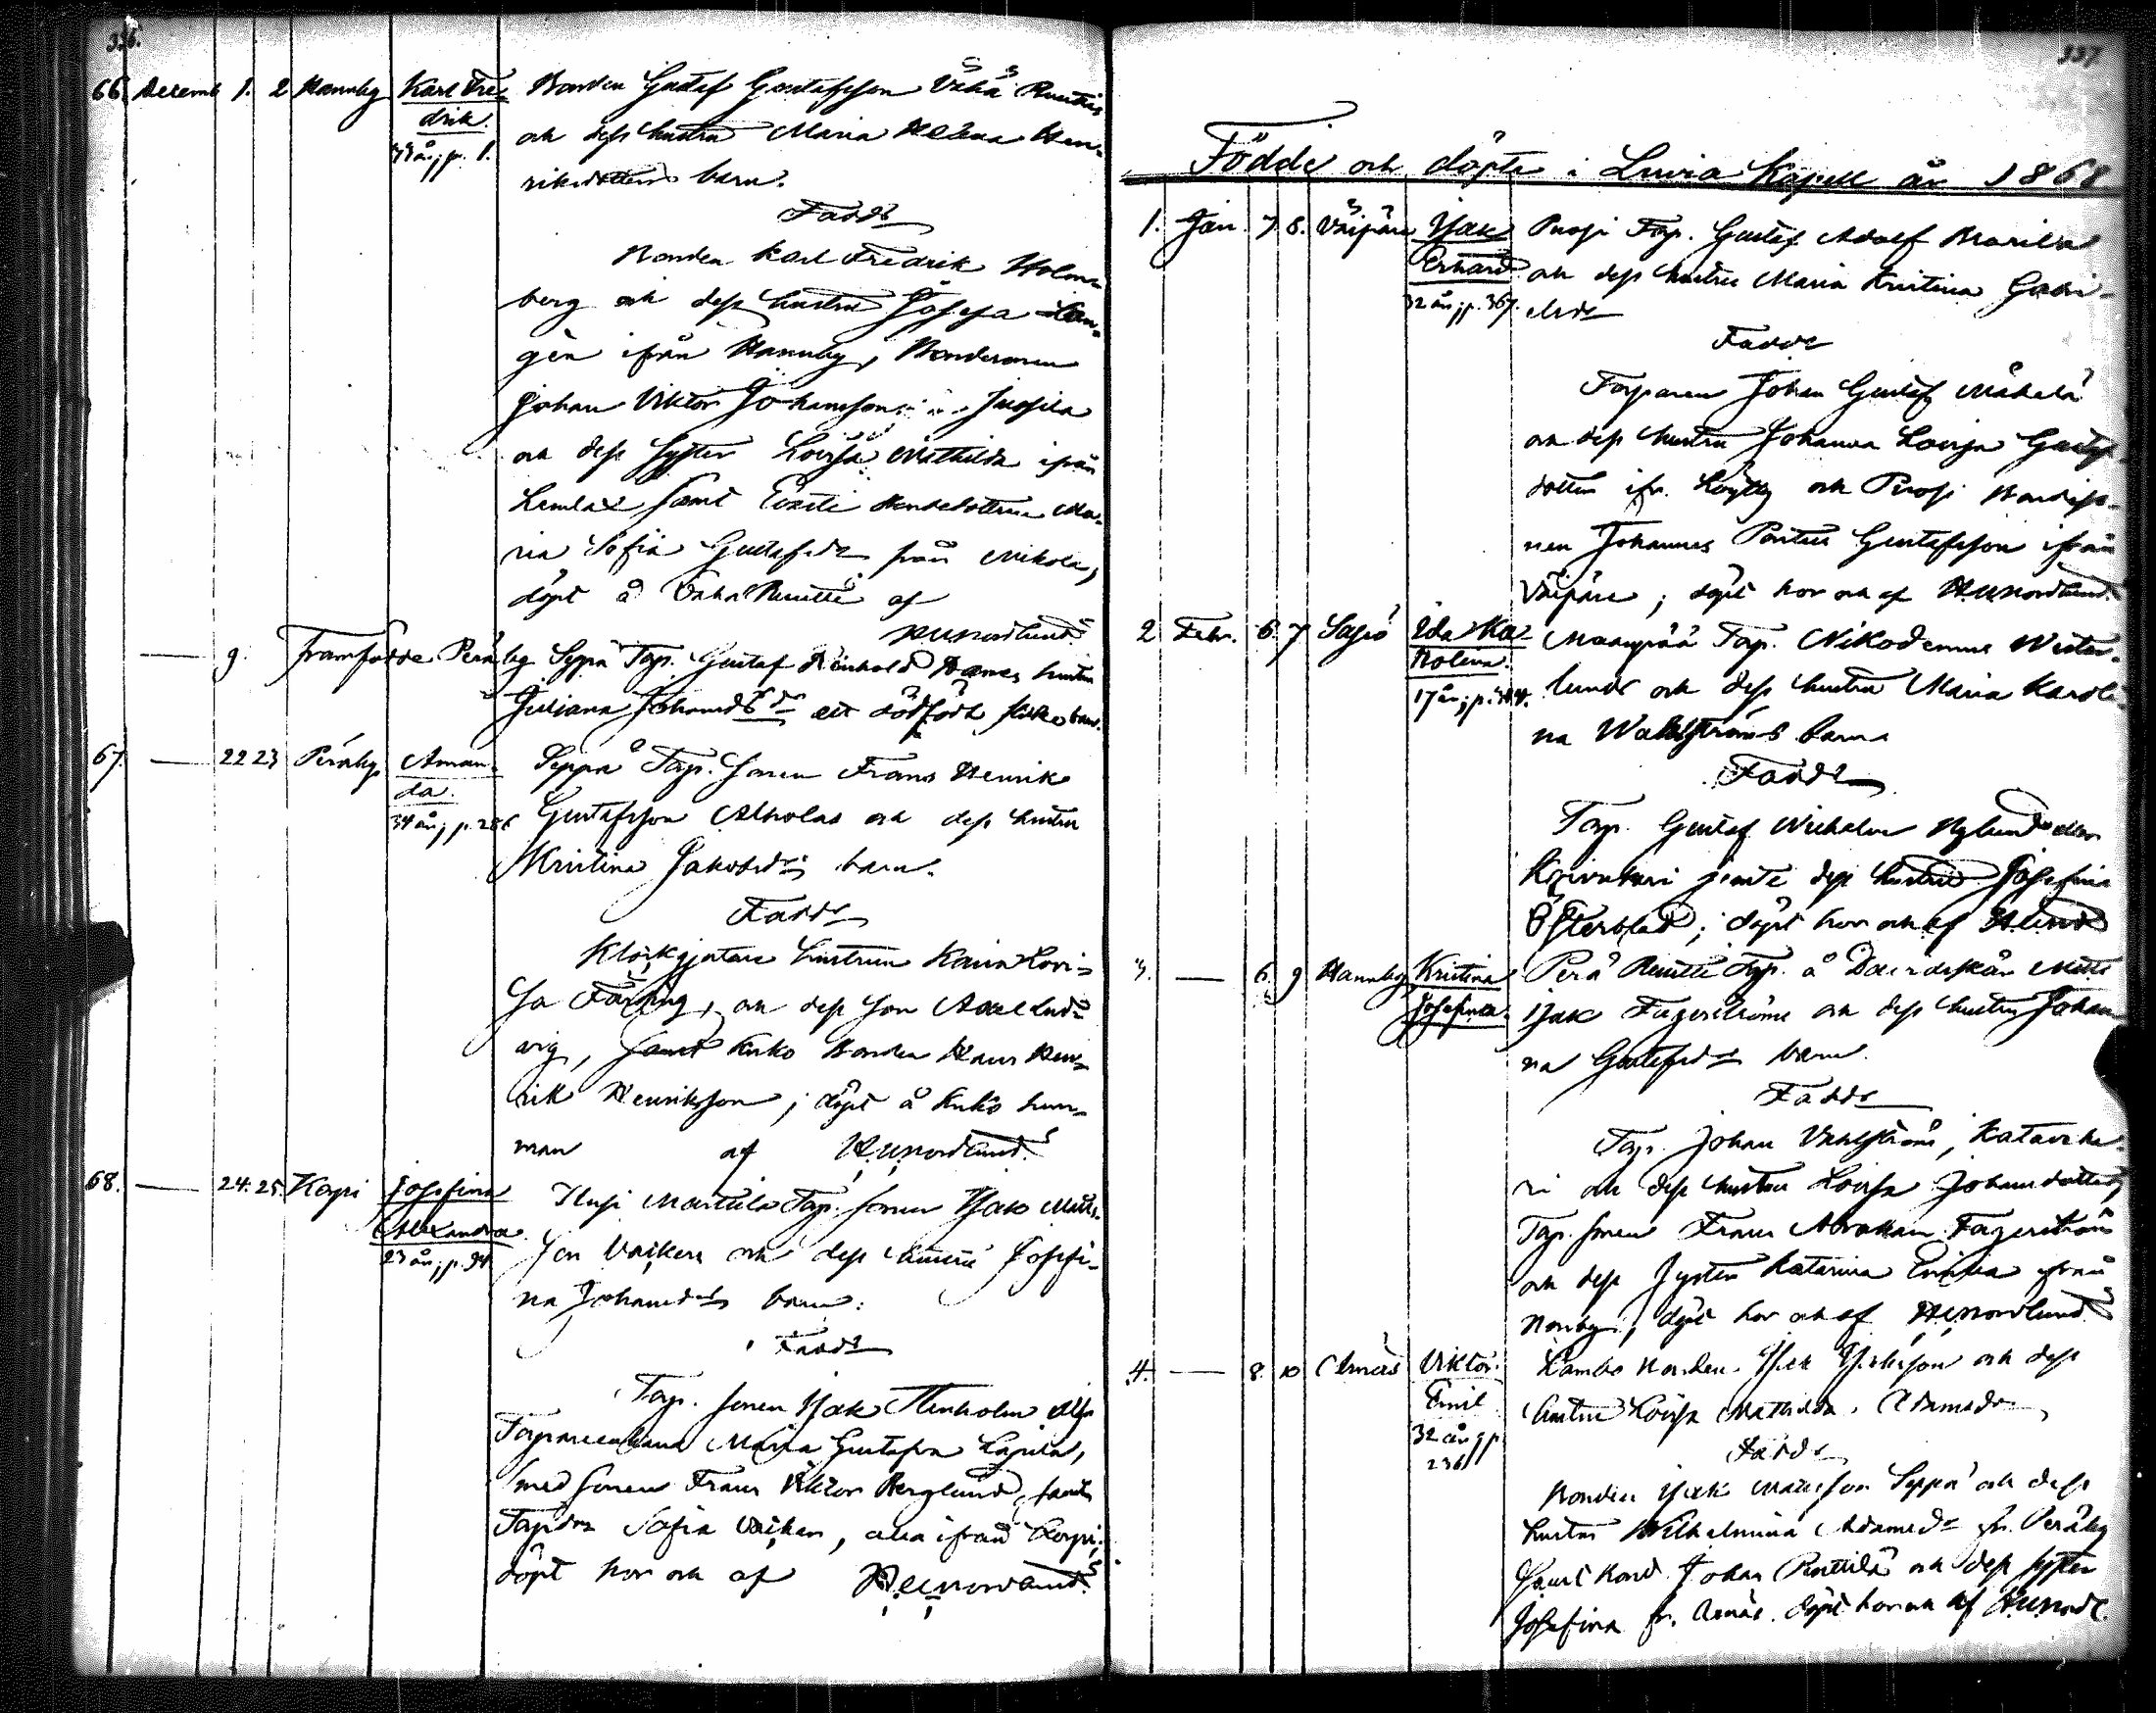 336.
66. Decemb 1. 2 Hannby Karl Fre-
drik.
43 år; p. 1.
Bonden Gustaf Gustafsson Vähä Ruutti
och dess hustru Maria Helena Hen-
riksdotters barn.
Fadd:
Bonden Karl Fredrik Holm-
berg och dess hustru Josefa
ifrån Hannby, Bondesonen
Johan Viktor Johansson
och dess syster Lovisa Mathilda ifrån
Lemlax samt Bondedottren Ma-
ria Sofia Gustafsdr från Nikola,
döpt å Vähä Ruutti af
HUNordlund
— 9. Framfödde Peräby Seppä Torp. Gustaf Reinhold hustru
Juliana Johansdr ett dödfödt flickebarn.
67. — 22 23 Peräby Aman-
da.
34 år; p. 286
Seppä Torp. sonen Frans Henrik
Gustafsson Alholas och dess hustru
Kristina Jakobsdrs barn.
Fadd:
Klockgjutare hustrun Karin Lovi-
sa Färling, och dess son Axel Lud-
vig, samt Kuko Bonden Hans Hen-
rik Henriksson; döpt å Kuko hem-
man af HUNordlund.
68. — 24. 25. Korpi Josefina
Alexandra.
23 år; p. 94
Marttila Torp. sonen Isak Matts-
son Vaiken och dess hustru Josefi-
na Johansdrs barn.
Fadd:
Torp. sonen Isak Stenholm
Torpareenkan Maria Gustafva Lapila,
med sonen Frans Viktor Berglund, samt
Torpdr Sofia Vaiken, alla ifrån Korpi,
döpt hos och af HUNordlund.
337
Födde och döpte i Luvia Kapell år 1868
1. Jan. 7. 8. Väipäre Isak
Erhard
32 år; p. 367.
Pussi Torp. Gustaf Adolf Marila
och dess hustru Maria Kristina Gabri-
elsdr
Fadd:
Torparen Johan Gustaf Mäkelä
och dess hustru Johanna Lovisa Gustafs-
dotter ifr. Löytty och Pussi Bondeso-
nen Johannes Pontus Gustafsson ifrån
Väipäre; döpt hos och af HUNordlund.
2 Febr. 6. 7 Sassö Ida Ka-
rolina.
Maanpää Torp. Nikodemus Wester-
lunds och dess hustru Maria Karoli-
na Wahlströms barn
Fadd:
Torp. Gustaf Wilhelm Nylund
Koivukari jemte dess hustru Josefina
Österblad; döpt hos och af HUNord
3. — 6. 9 Hannby Kristina
Josefina.
Perä Ruutti Torp. å
Isak Fagerström och dess hustru Johan-
na Gustafsdrs barn.
Fadd:
Torp. Johan Vahlström, Katavka-
ri och dess hustru Lovisa Johansdotter,
Torp. sonen Frans Abraham Fagerström
och dess syster Katarina Emilia ifrån
Norrby, döpt hos och af HUNordlund
4. — 8. 10 Arnäs Viktor
Emil
32 år; p.
236
Lambo Bonden Isak Isaksson och dess
hustru Lovisa Mathilda Adamsdr
Fadd:
Bonden Isak Mattsson Seppä och dess
hustru Wilhelmina Adamsdr fr. Peräby
samt Bond. Johan Penttilä och dess syster
Josefina fr. Arnäs. Döpt hos och af HUNordl.